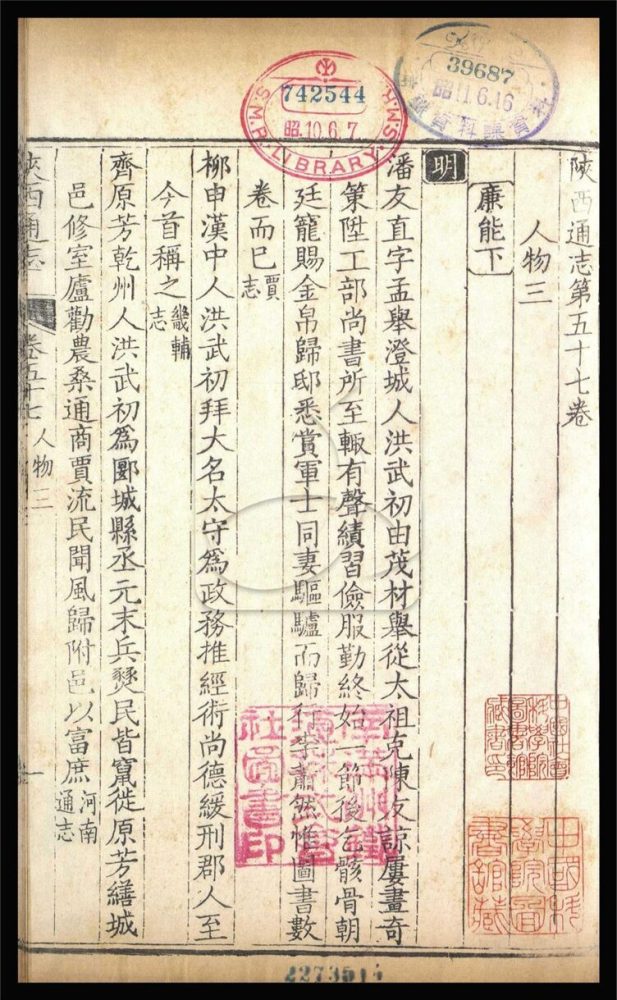 陝西通志第五十七卷
人物三
廉能下
明
潘友直字孟舉澄城人洪武初由茂材舉從太祖克陳友諒屢畫奇
策陞工部尚書所至輙有聲績習儉服勤終始一節後乞骸骨朝
廷寵賜金帛歸邸悉賞軍士同妻驅驢而歸行李蕭然惟圖書數
卷而已賈志
柳申漢中人洪武初拜大名太守爲政務推經術尚德緩刑郡人至
今首稱之畿輔志
齊原芳乾州人洪武初爲郾城縣丞元末兵燹民皆竄徙原芳繕城
邑修室廬勸農桑通商賈流民聞風歸附邑以富庶河南通志
陝西通志 卷五十七 人物三 一
742544
昭10.6.7
S.M.R. LIBRARY
39687
昭11.6.16
南滿洲鐵道株式會社圖書印
中國社會科學院圖書館藏書印
中國科學院圖書館藏
2273514